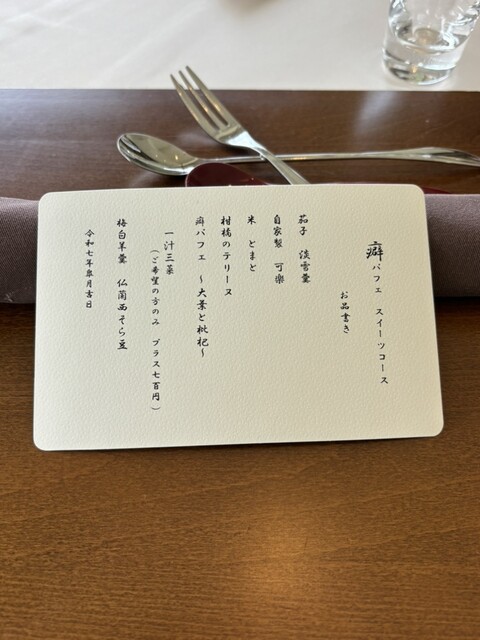 癖パフェ スイーツコース
お品書き
茄子 淡雪羹
自家製 可楽
米 とまと
柑橘のテリーヌ
癖パフェ ～大葉と枇杷～
一汁三菜
（ご希望の方のみ プラス七百円）
梅白羊羹 仏蘭西そら豆
令和七年皐月吉日